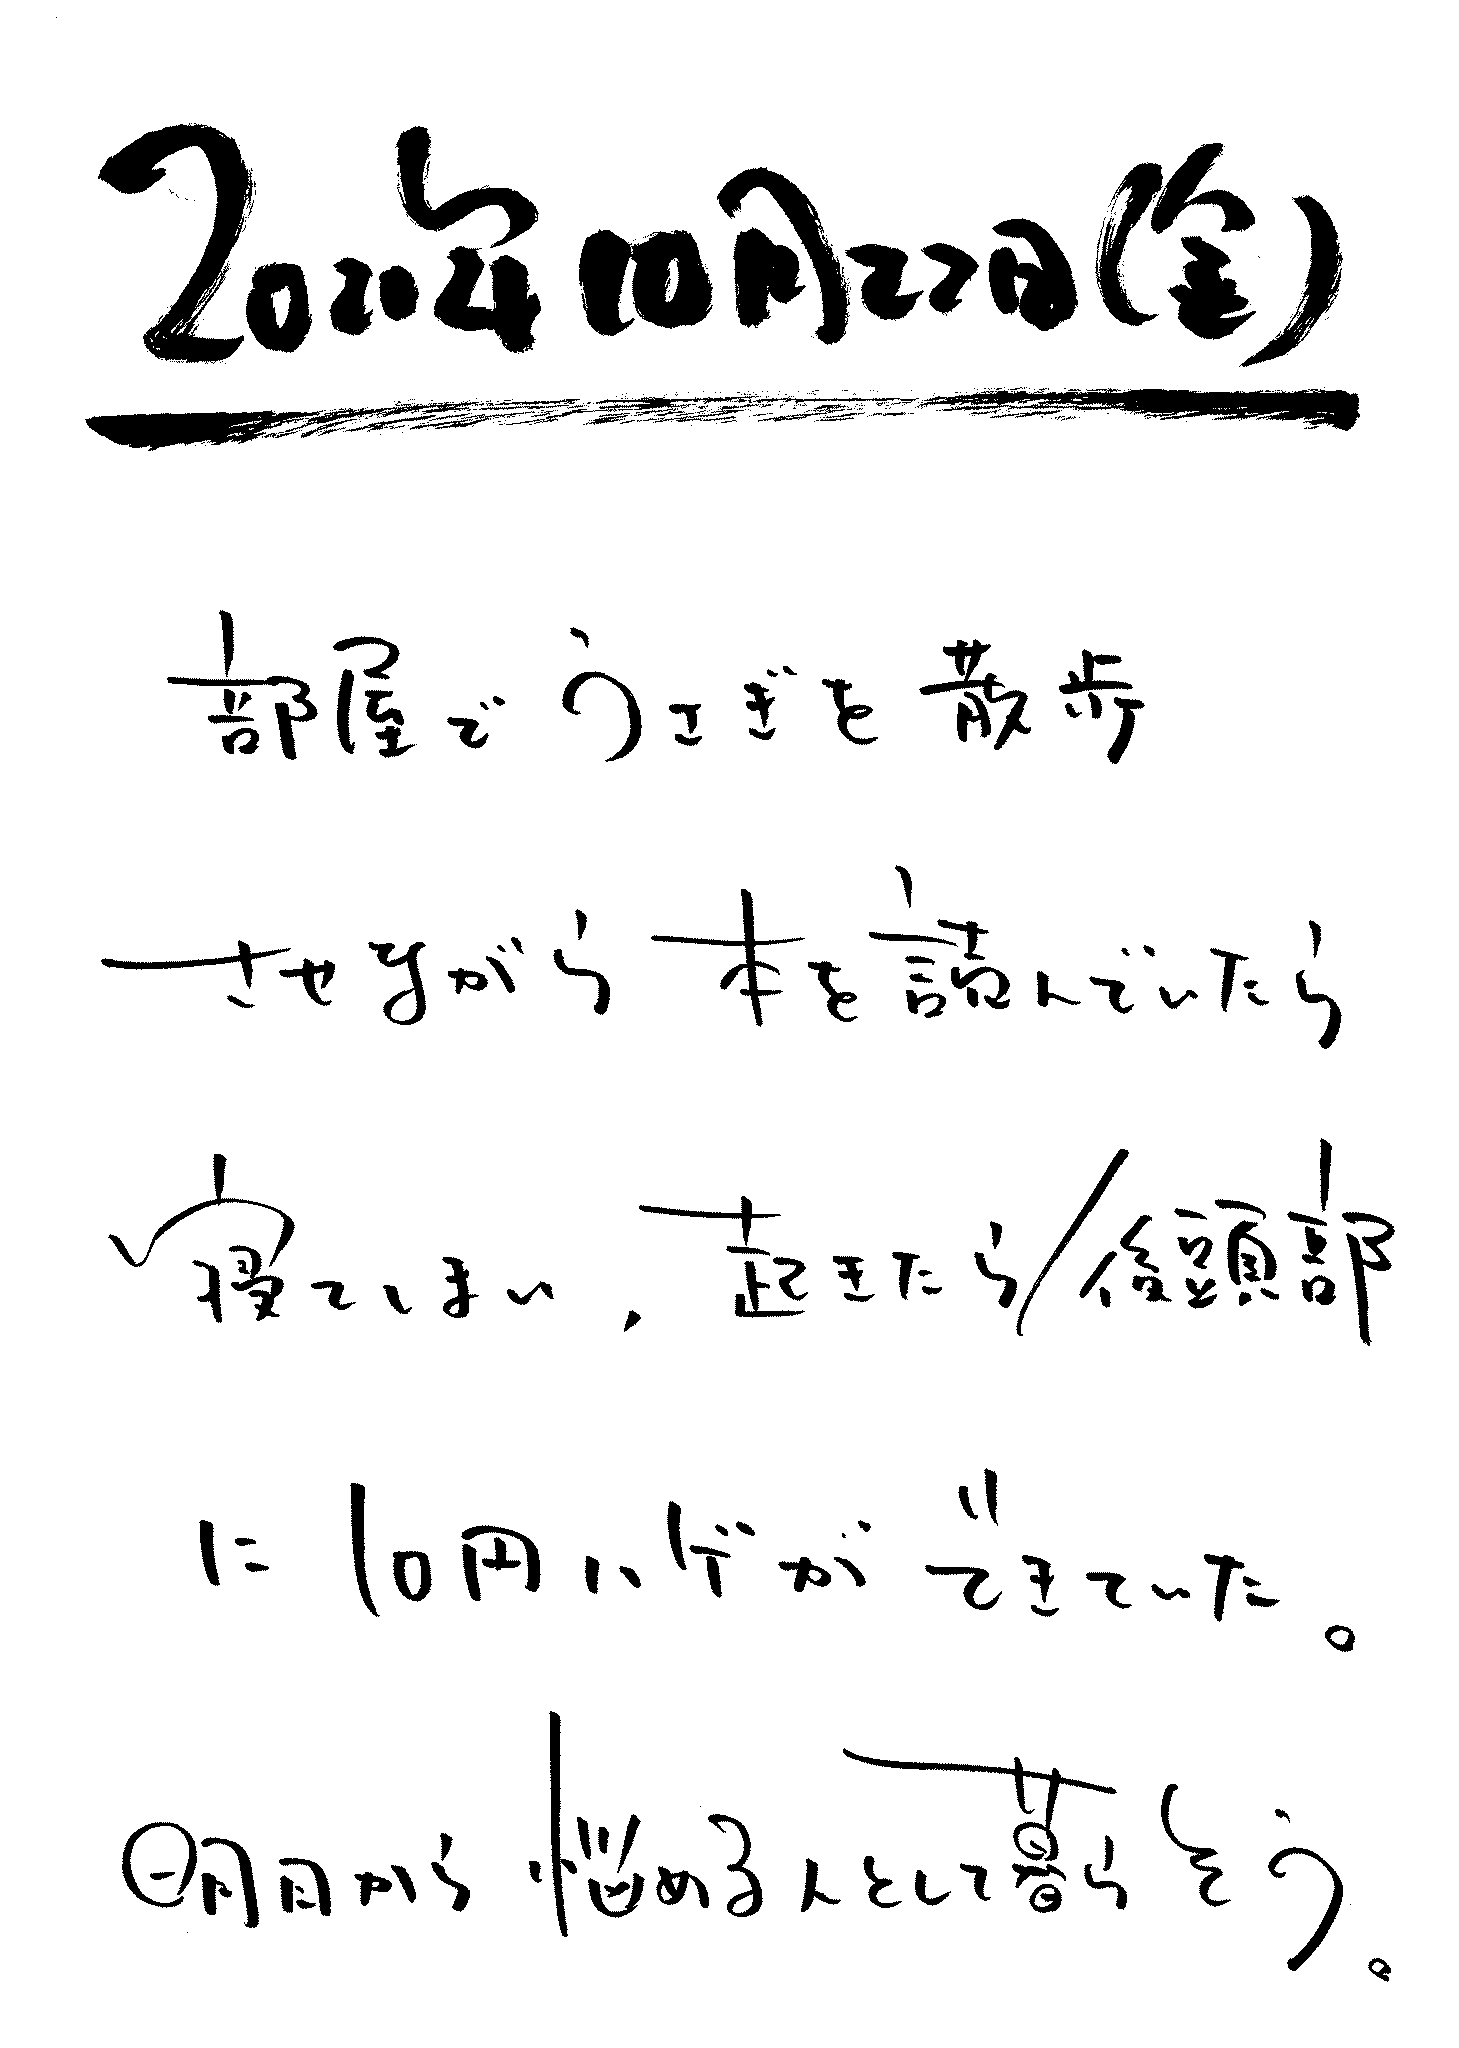 2021年10月22日(金)
部屋でうさぎを散歩
させながら本を読んでいたら
寝てしまい、起きたら後頭部
に10円ハゲができていた。
明日から悩める人として暮らそう。